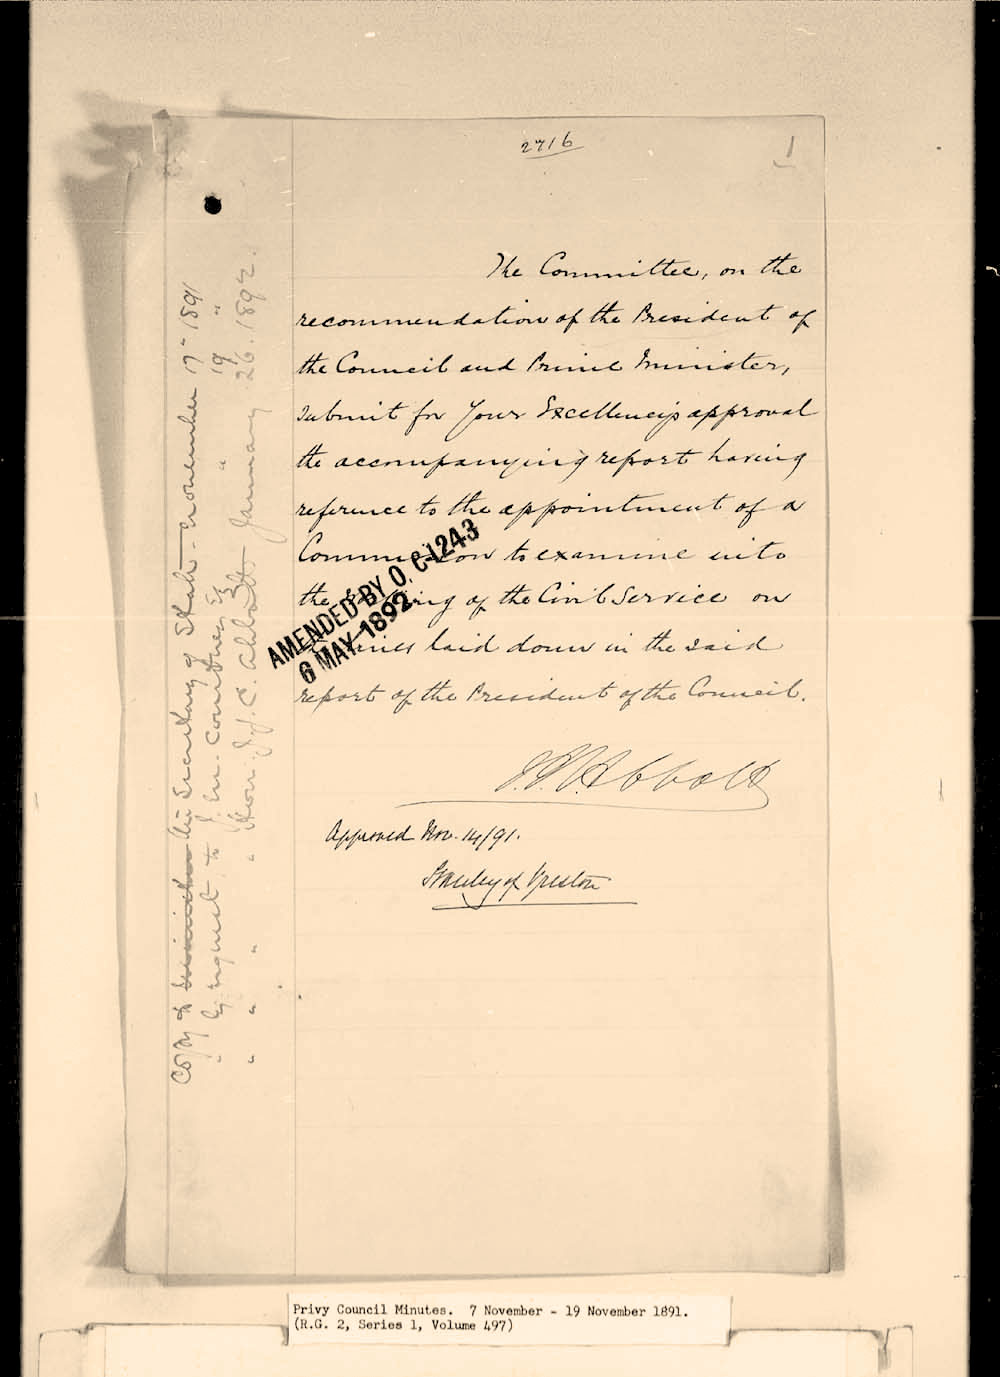 2716
1
The Committee, on the
recommendation of the President of
the Council and Prime Minister,
submit for Your Excellency's approval
the accompanying report having
reference to the appointment of a
Commission to examine into
the of the Civil Service on
laid down in the said
report of the President of the Council.
J.J.C. Abbott
Approved Nov. 14/91.
Stanley of Preston
AMENDED BY O. C-1243
6 MAY 1892
Copy to Secretary of State November 17 1891
" by request, to J. M. Courtney Esq " 19 "
" " " " Hon. J.J.C. Abbott January 26. 1892.
Privy Council Minutes. 7 November - 19 November 1891.
(R.G. 2, Series 1, Volume 497)